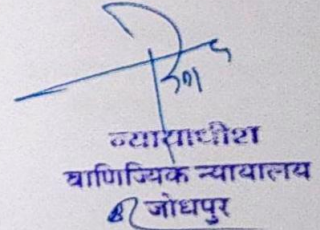 न्यायाधीश
वाणिज्यिक न्यायालय
जोधपुर